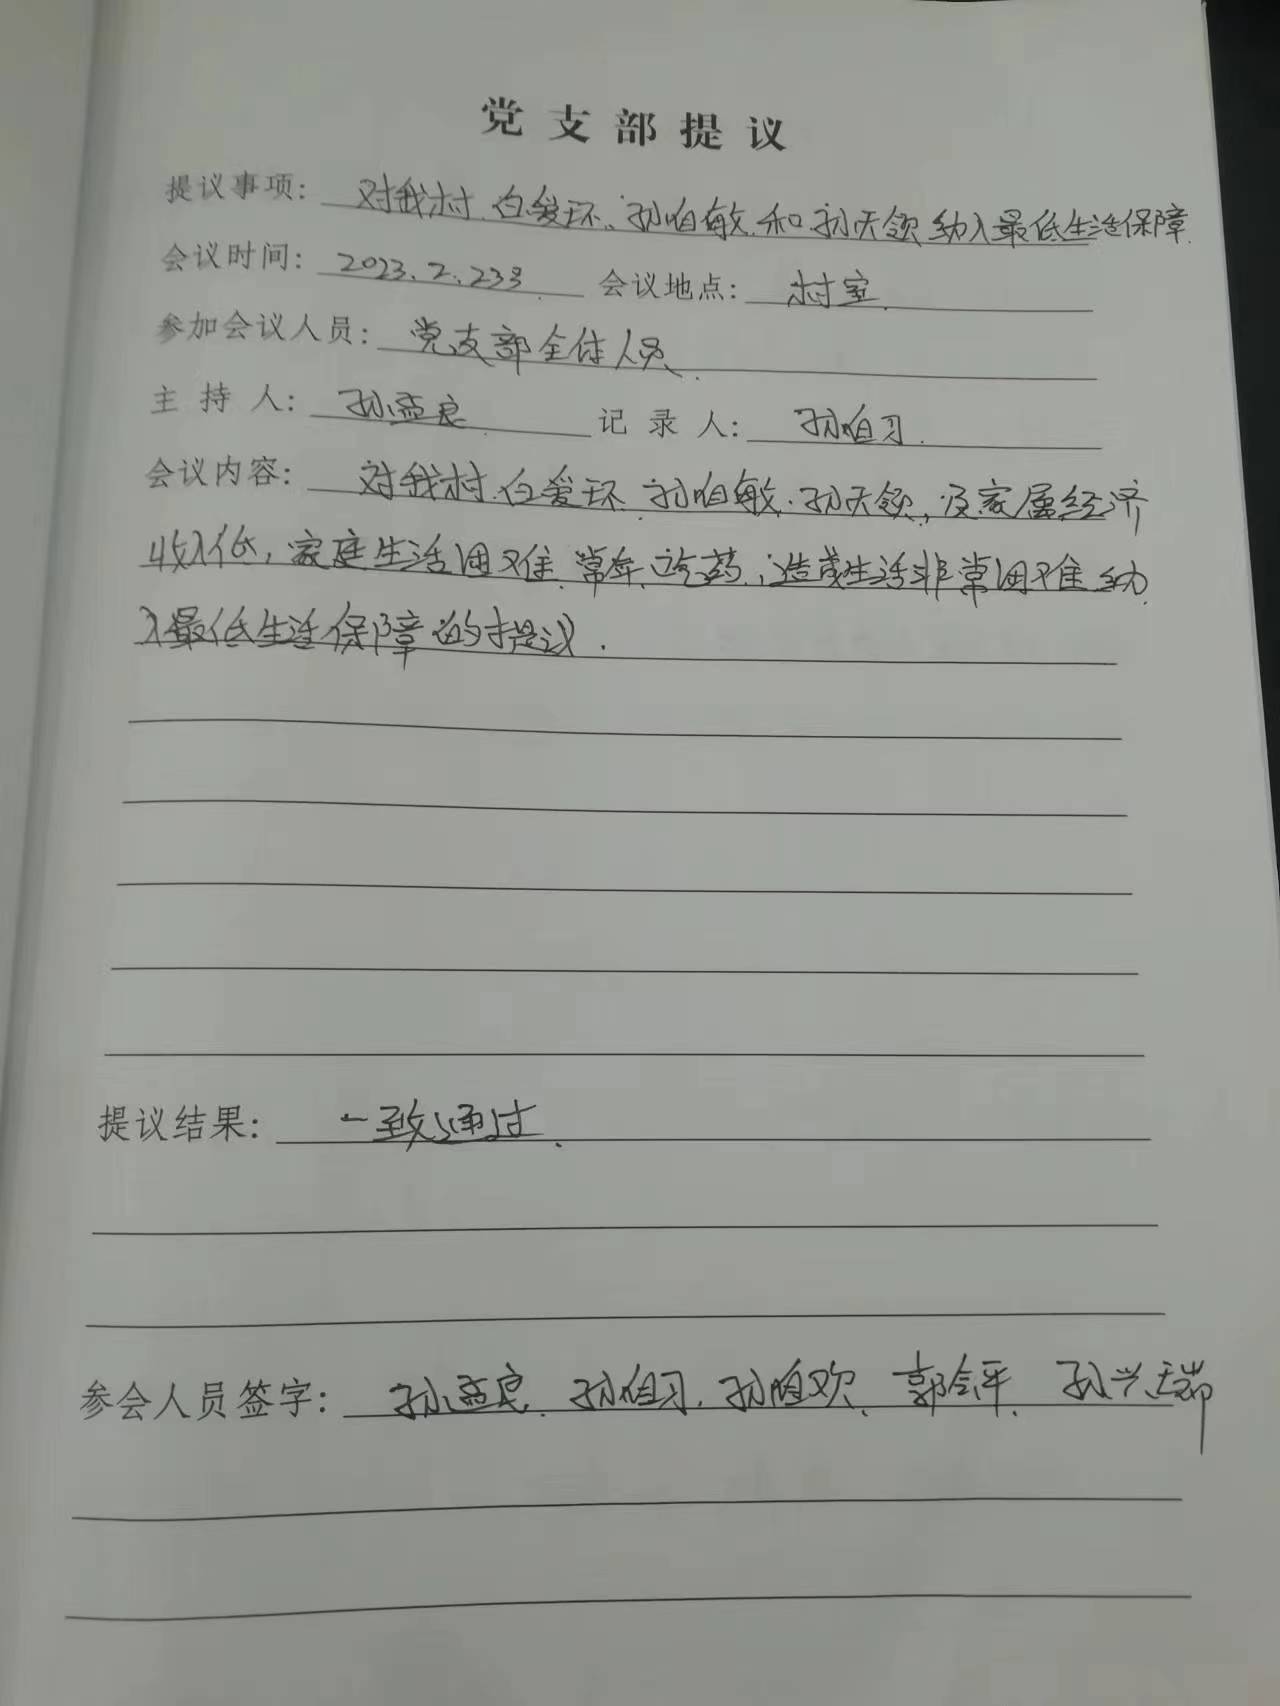 党支部提议
提议事项: 对我村.白爱环、孙伯敏.和孙天领纳入最低生活保障.
会议时间: 2023.2.23号. 会议地点: 村室.
参加会议人员: 党支部全体人员.
主持人: 孙孟良. 记录人: 孙伯习.
会议内容: 对我村.白爱环.孙伯敏.孙天领,及家属经济
收入低,家庭生活困难.常年吃药,造成生活非常困难纳
入最低生活保障的提议.
提议结果: 一致通过.
参会人员签字: 孙孟良.孙伯习.孙伯欢.郭会平.孙兴